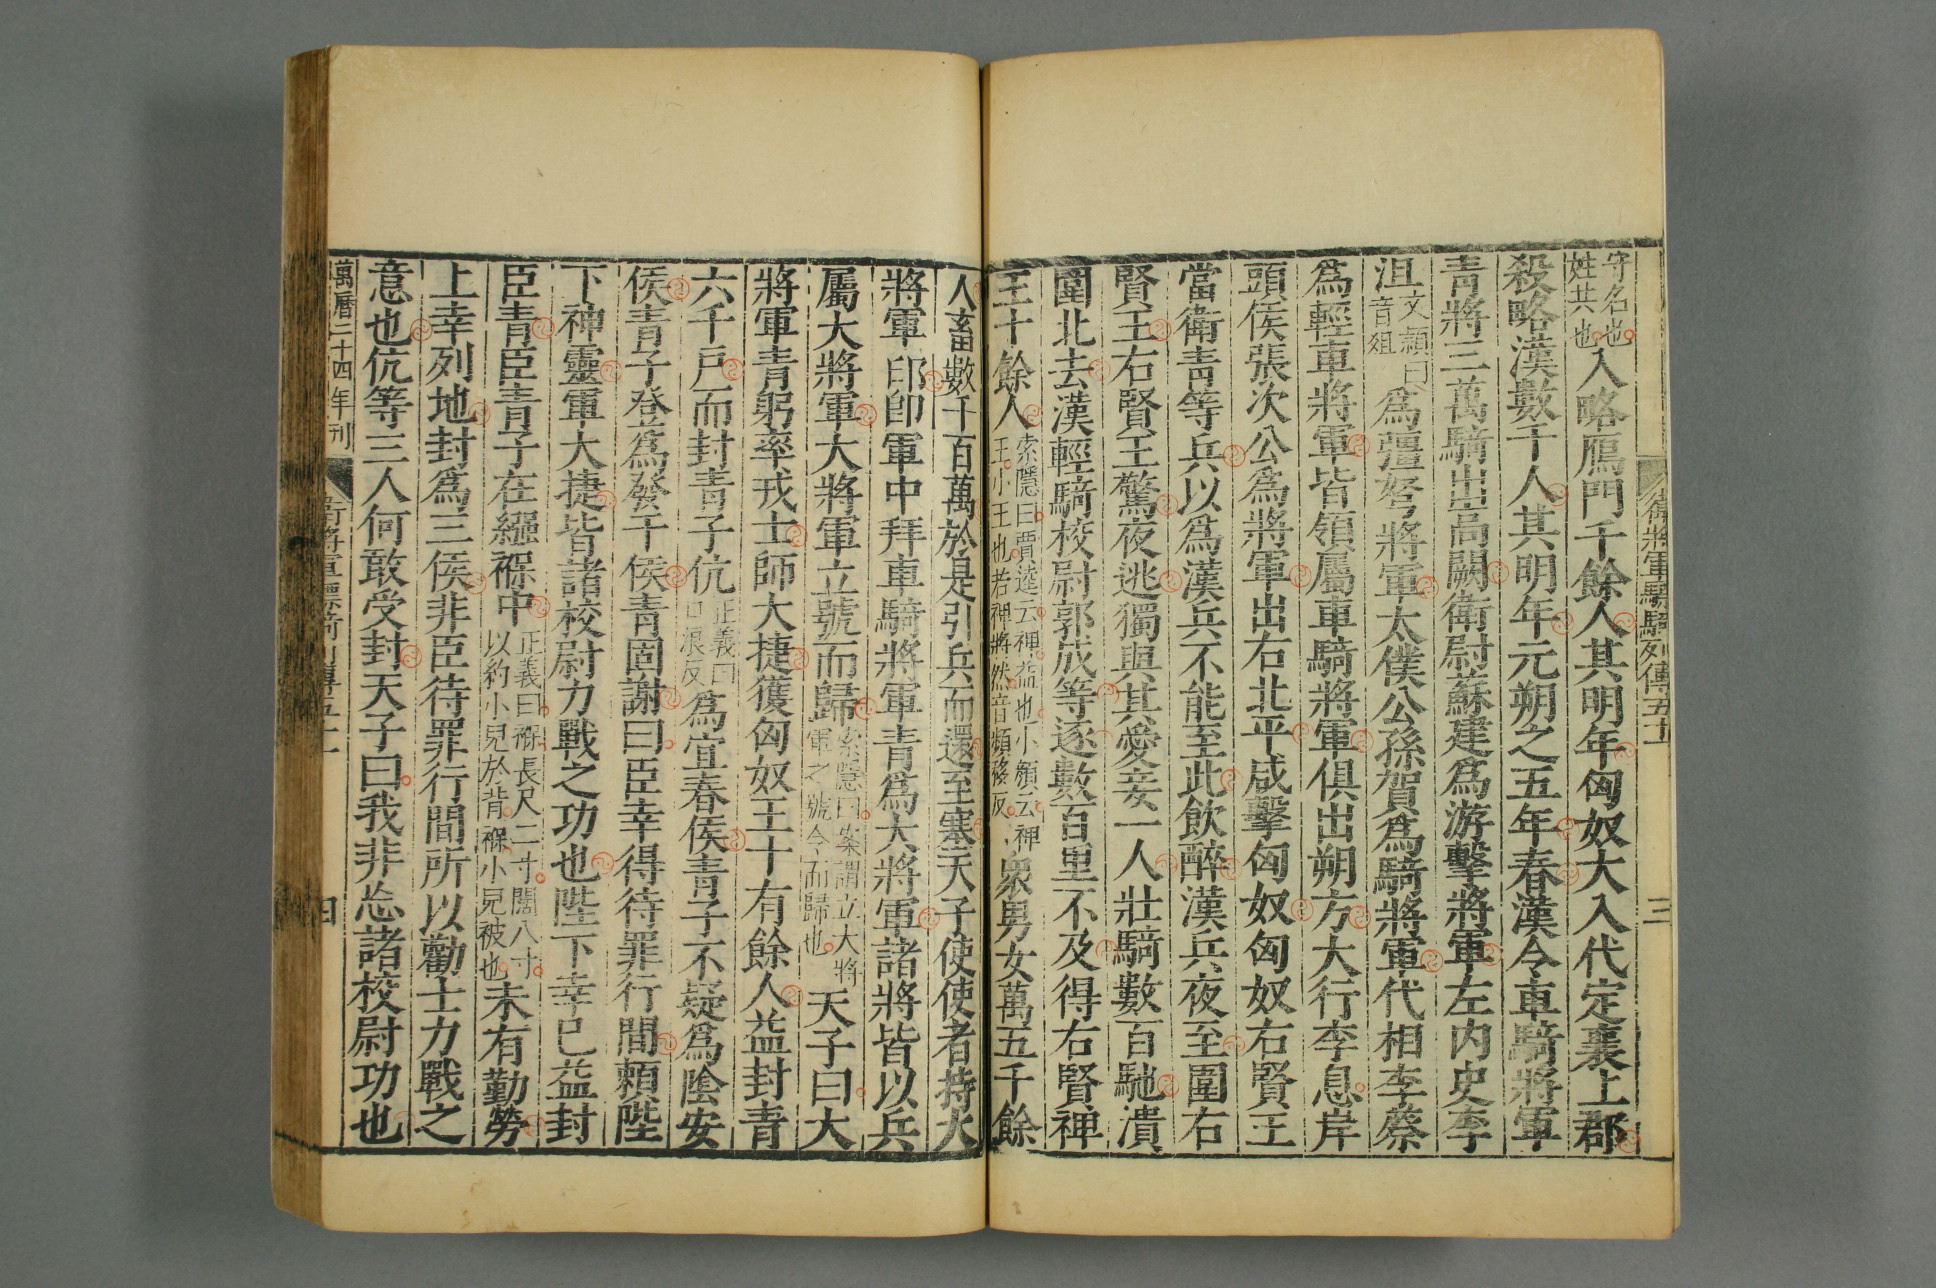 衛將軍驃騎列傳五十一 三
守名也姓共也入略鴈門千餘人其明年匈奴大入代定襄上郡
殺略漢數千人其明年元朔之五年春漢令車騎將軍
青將三萬騎出高闕衛尉蘇建爲游擊將軍左內史李
沮文穎曰音俎爲彊弩將軍太僕公孫賀爲騎將軍代相李蔡
爲輕車將軍皆領屬車騎將軍俱出朔方大行李息岸
頭侯張次公爲將軍出右北平咸擊匈奴匈奴右賢王
當衛青等兵以爲漢兵不能至此飲醉漢兵夜至圍右
賢王右賢王驚夜逃獨與其愛妾一人壯騎數百馳潰
圍北去漢輕騎校尉郭成等逐數百里不及得右賢裨
王十餘人索隱曰賈逵云裨益也小顏云裨王小王也若裨將然音頻移反衆男女萬五千餘
人畜數千百萬於是引兵而還至塞天子使使者持大
將軍印卽軍中拜車騎將軍青爲大將軍諸將皆以兵
屬大將軍大將軍立號而歸索隱曰案謂立大將軍之號令而歸也天子曰大
將軍青躬率戎士師大捷獲匈奴王十有餘人益封青
六千戶而封青子伉正義曰口浪反爲宜春侯青子不疑爲陰安
侯青子登爲發干侯青固謝曰臣幸得待罪行間賴陛
下神靈軍大捷皆諸校尉力戰之功也陛下幸已益封
臣青臣青子在繦褓中正義曰褓長尺二寸闊八寸以約小兒於背褓小兒被也未有勤勞
上幸列地封爲三侯非臣待罪行間所以勸士力戰之
意也伉等三人何敢受封天子曰我非忘諸校尉功也
萬曆二十四年刊 四